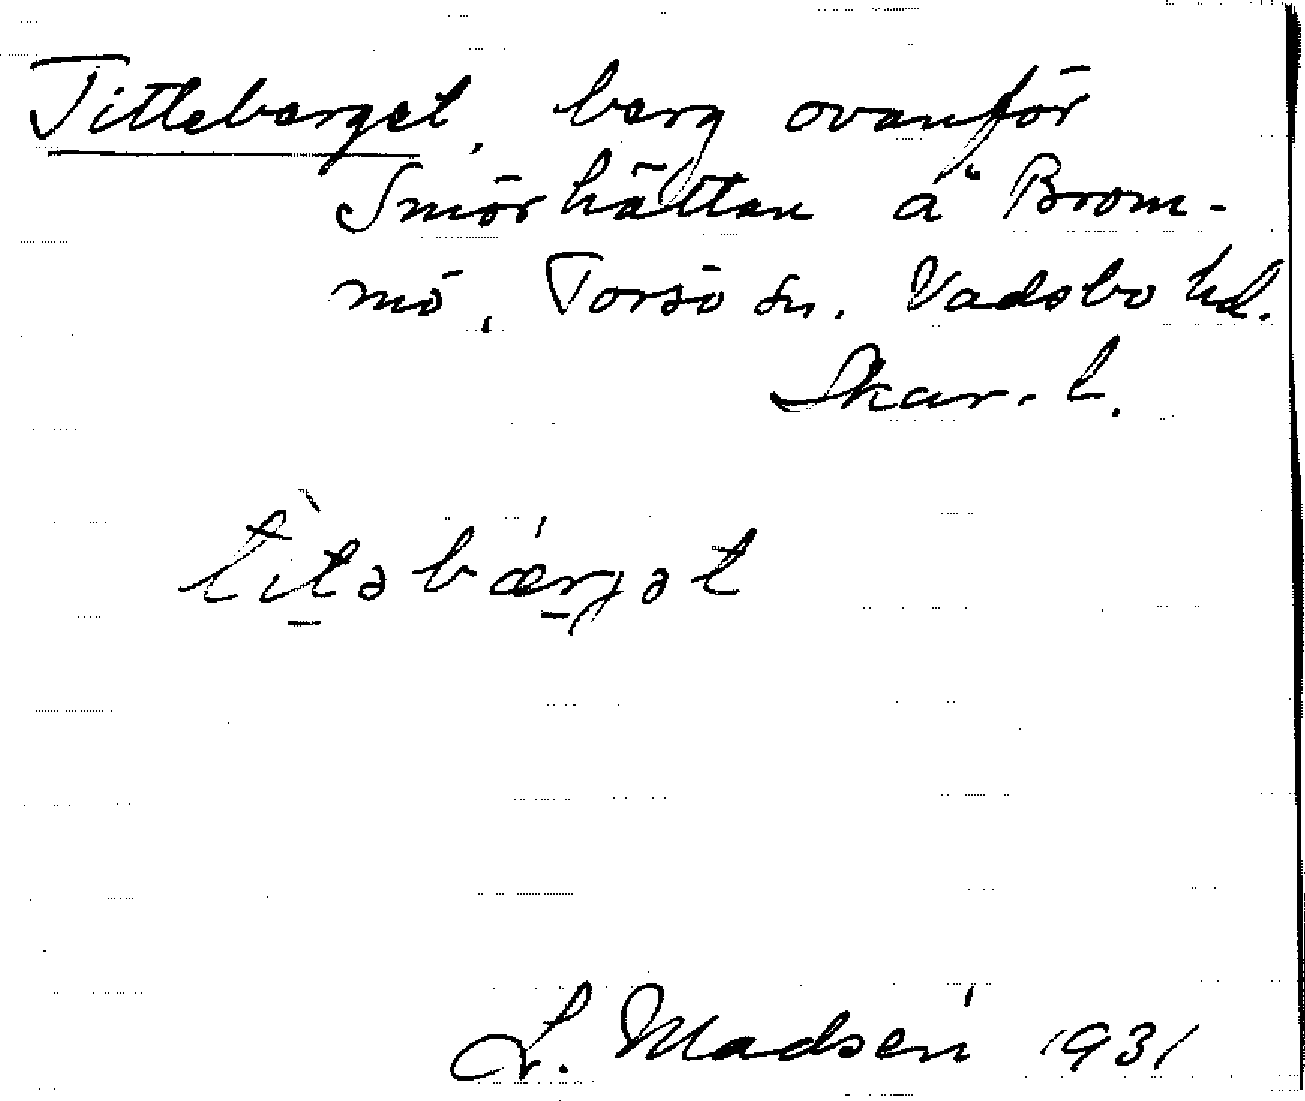 Titteberget, berg ovanför
Smörhättan å Brom-
mö, Torsö sn. Vadsbo hd.
Skar. l.
tìtəbǽrjət
L. Madsén 1931